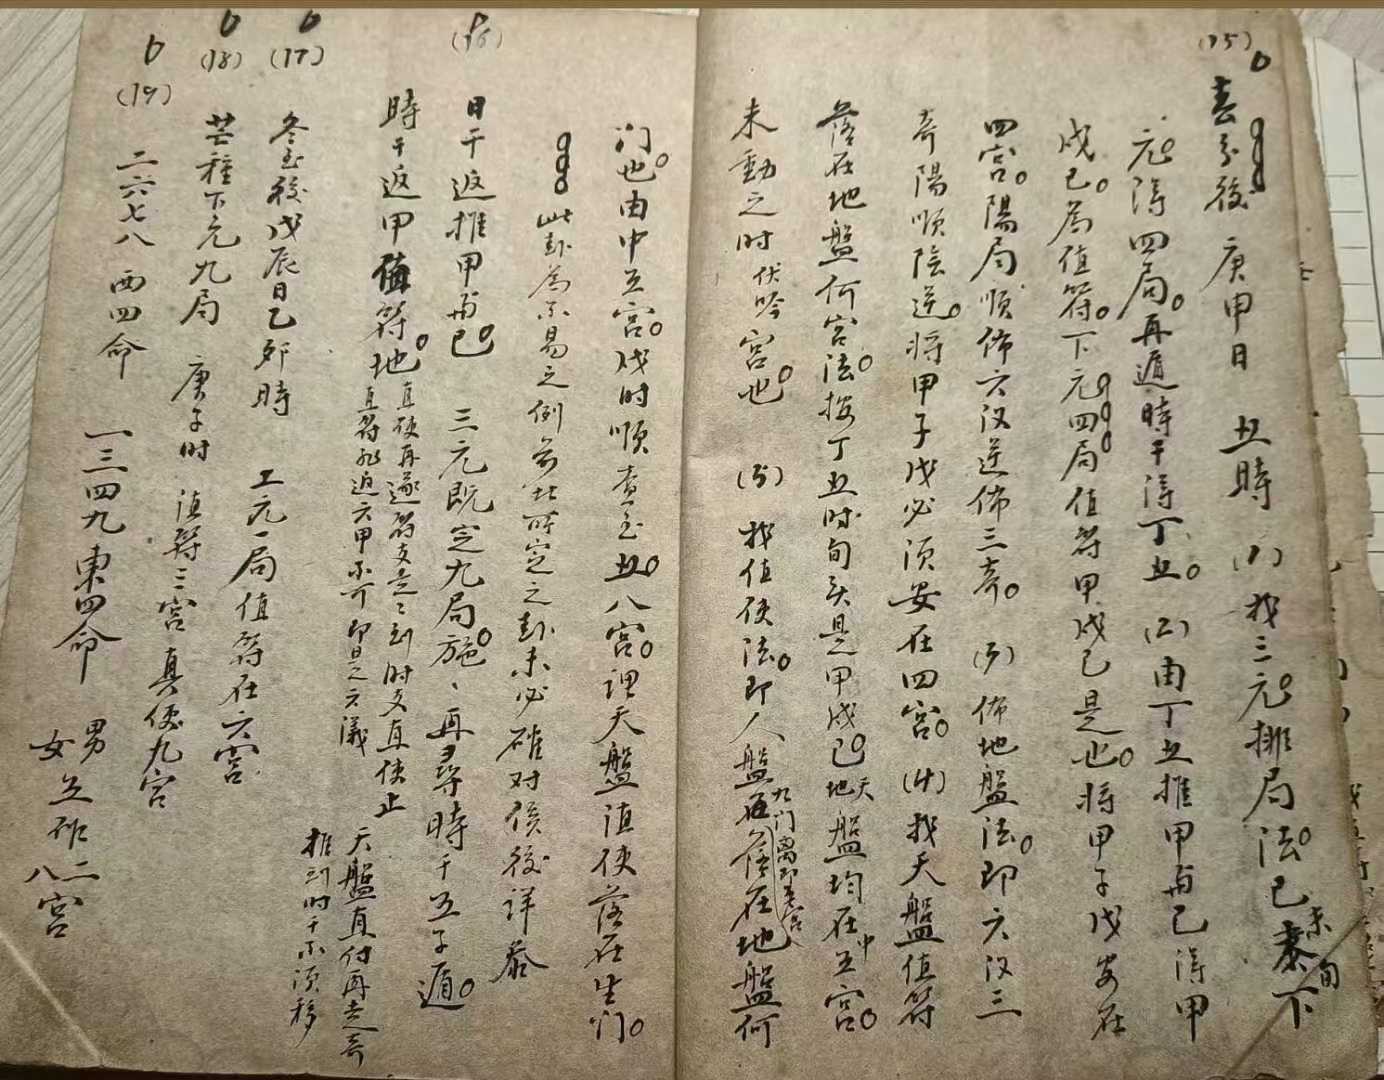 (15)
春分後 庚甲日 丑時 (1)找三元排局法。己未旬下
元。得四局。再遁時干得丁丑。(2)由丁丑推甲与己得甲
戌己。為值符。下元四局值符甲戌己是也。將甲子戊安在
四宮。陽局順佈六仪逆佈三奇。(3)佈地盤法。即六仪三
奇陽順陰逆。將甲子戊必須安在四宮。(4)找天盤值符
落在地盤何宮法。按丁丑時旬頭是甲戌己天地盤均在中五宮。
未動之时伏吟宮也。 (5) 找值使法。即人盤落在地盤何
九门离即
门也。由中五宮。戊时順查至丑。八宮。理天盤值使落在生门。
此卦為不易之例前此所定之卦未必確对候後詳參
(16)
日干返推甲与己。 三元既定九局施。再尋時干五子遁。
時干返甲值符地。直使再逐符支是 到时支直使止
直符飛迫六甲不可即是六儀
天盤直付再走奇
推到时干不須移
(17)
冬至後戊辰日乙卯時 上元一局值符在六宮
(18)
芒種下元九局 庚子时 值符三宮 真使九宮
(19)
二六七八 西四命 一三四九東四命 男女五砤二八宮